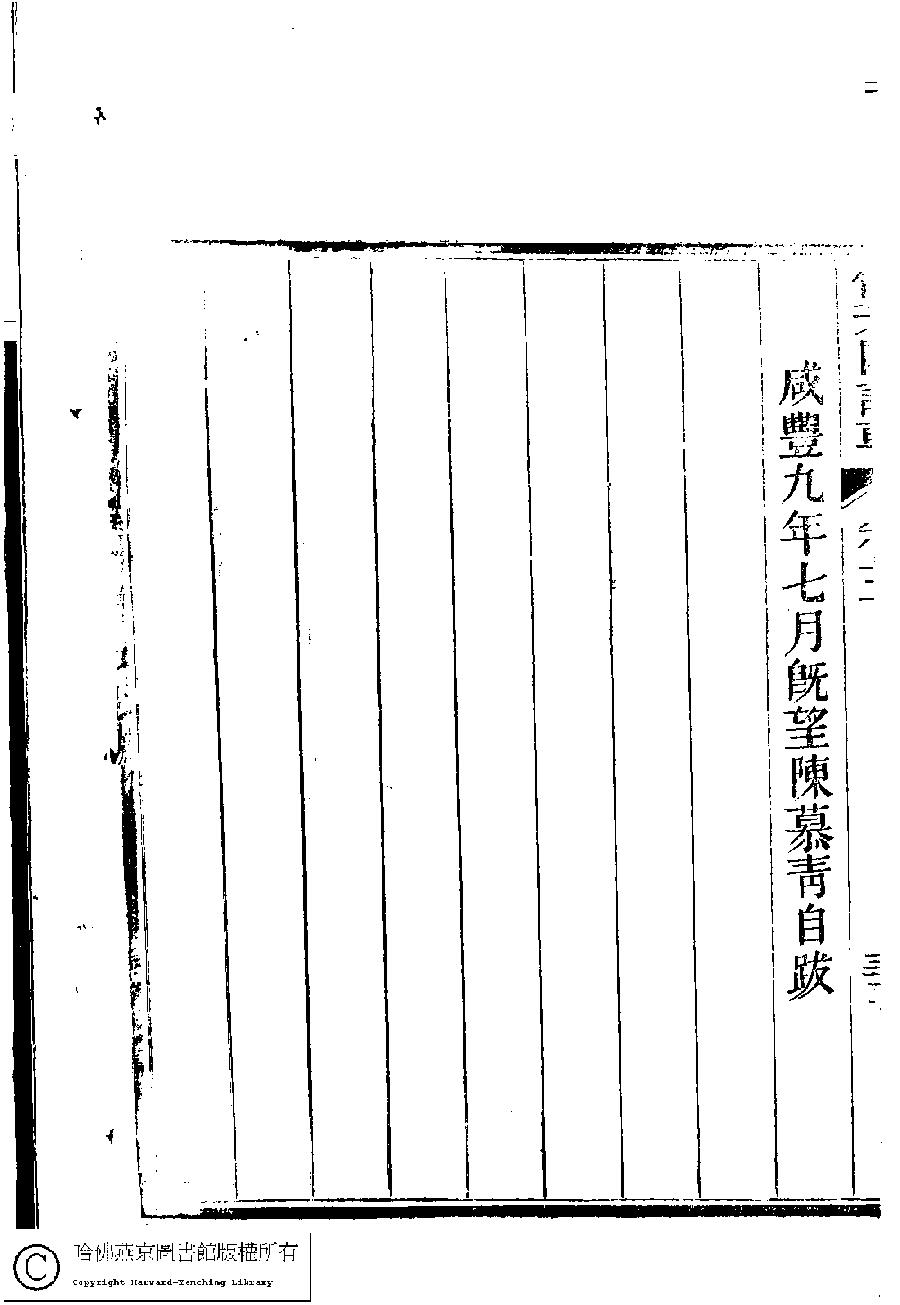 咸豐九年七月旣望陳慕靑自跋
哈佛燕京圖書館版權所有
Copyright Harvard-Yenching Library